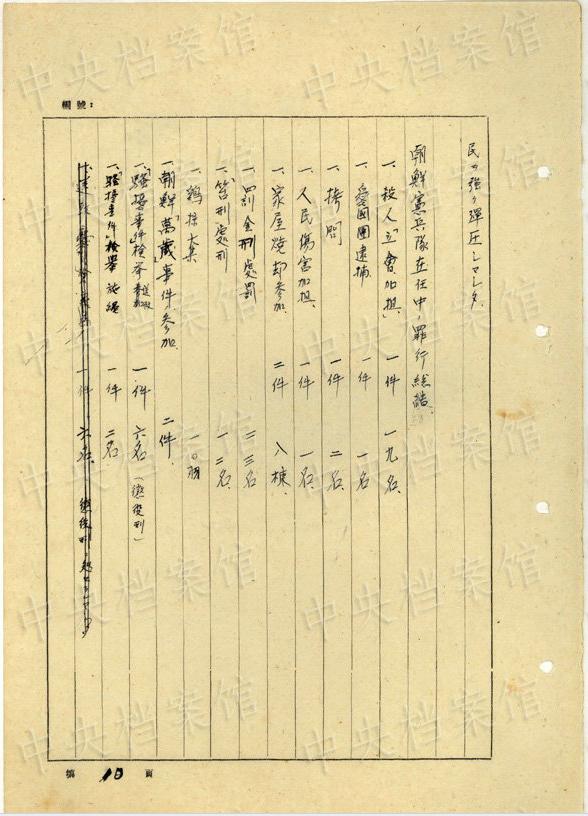 編號：
民ヲ強ク彈圧シマシタ．
朝鮮憲兵隊在任中ノ罪行総結．
一、殺人「立會加担」 一件 一九名．
一、愛国團逮捕 一件 一名．
一、拷問 一件 二名．
一、人民傷害加担． 一件 一名．
一、家屋焼却参加． 二件 八棟．
一、罰金刑處罰 二三名
一、笞刑處刑 一二名．
一、鶏掠奪 一〇羽
一、朝鮮「萬歳」事件参加． 二件．
一、「騒擾事件」検挙 一件 六名（懲役刑）
一、「騒擾事件」検挙 一件 二名．
一件 六名． 懲役刑ニ處セシマシタ
第 10 頁
中央档案馆